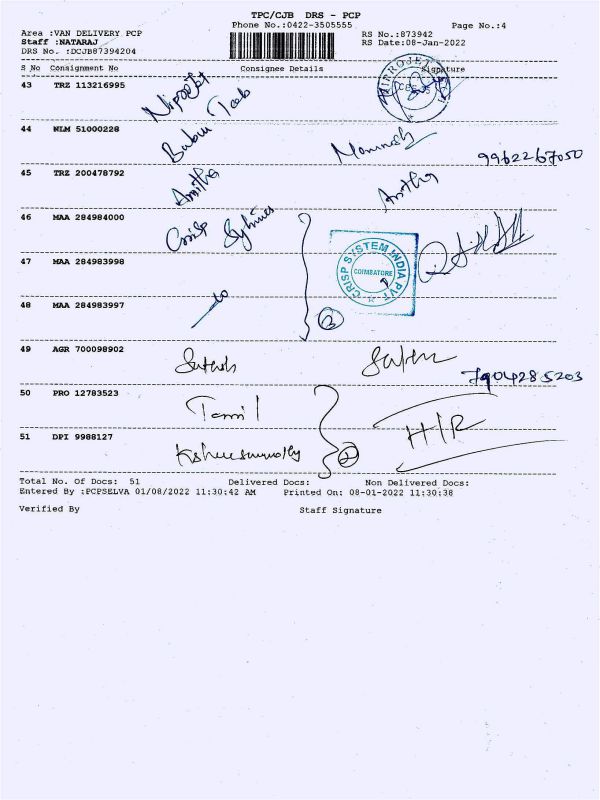 TPC/CJB DRS - PCP
Phone No.:0422-3505555
Page No.:4
Area :VAN DELIVERY PCP
RS No.:873942
Staff :NATARAJ
RS Date:08-Jan-2022
DRS No. :DCJB87394204
S No Consignment No Consignee Details Signature
43 TRZ 113216995
44 NLM 51000228
9962267050
45 TRZ 200478792 Anitha Anitha
46 MAA 284984000 Crisp Systems
CRISP SYSTEM INDIA PVT
COIMBATORE
47 MAA 284983998
48 MAA 284983997 3
49 AGR 700098902 Sathish
7904285203
50 PRO 12783523 Tamil
H/R
51 DPI 9988127 2
Total No. Of Docs: 51 Delivered Docs: Non Delivered Docs:
Entered By :PCPSELVA 01/08/2022 11:30:42 AM Printed On: 08-01-2022 11:30:38
Verified By Staff Signature